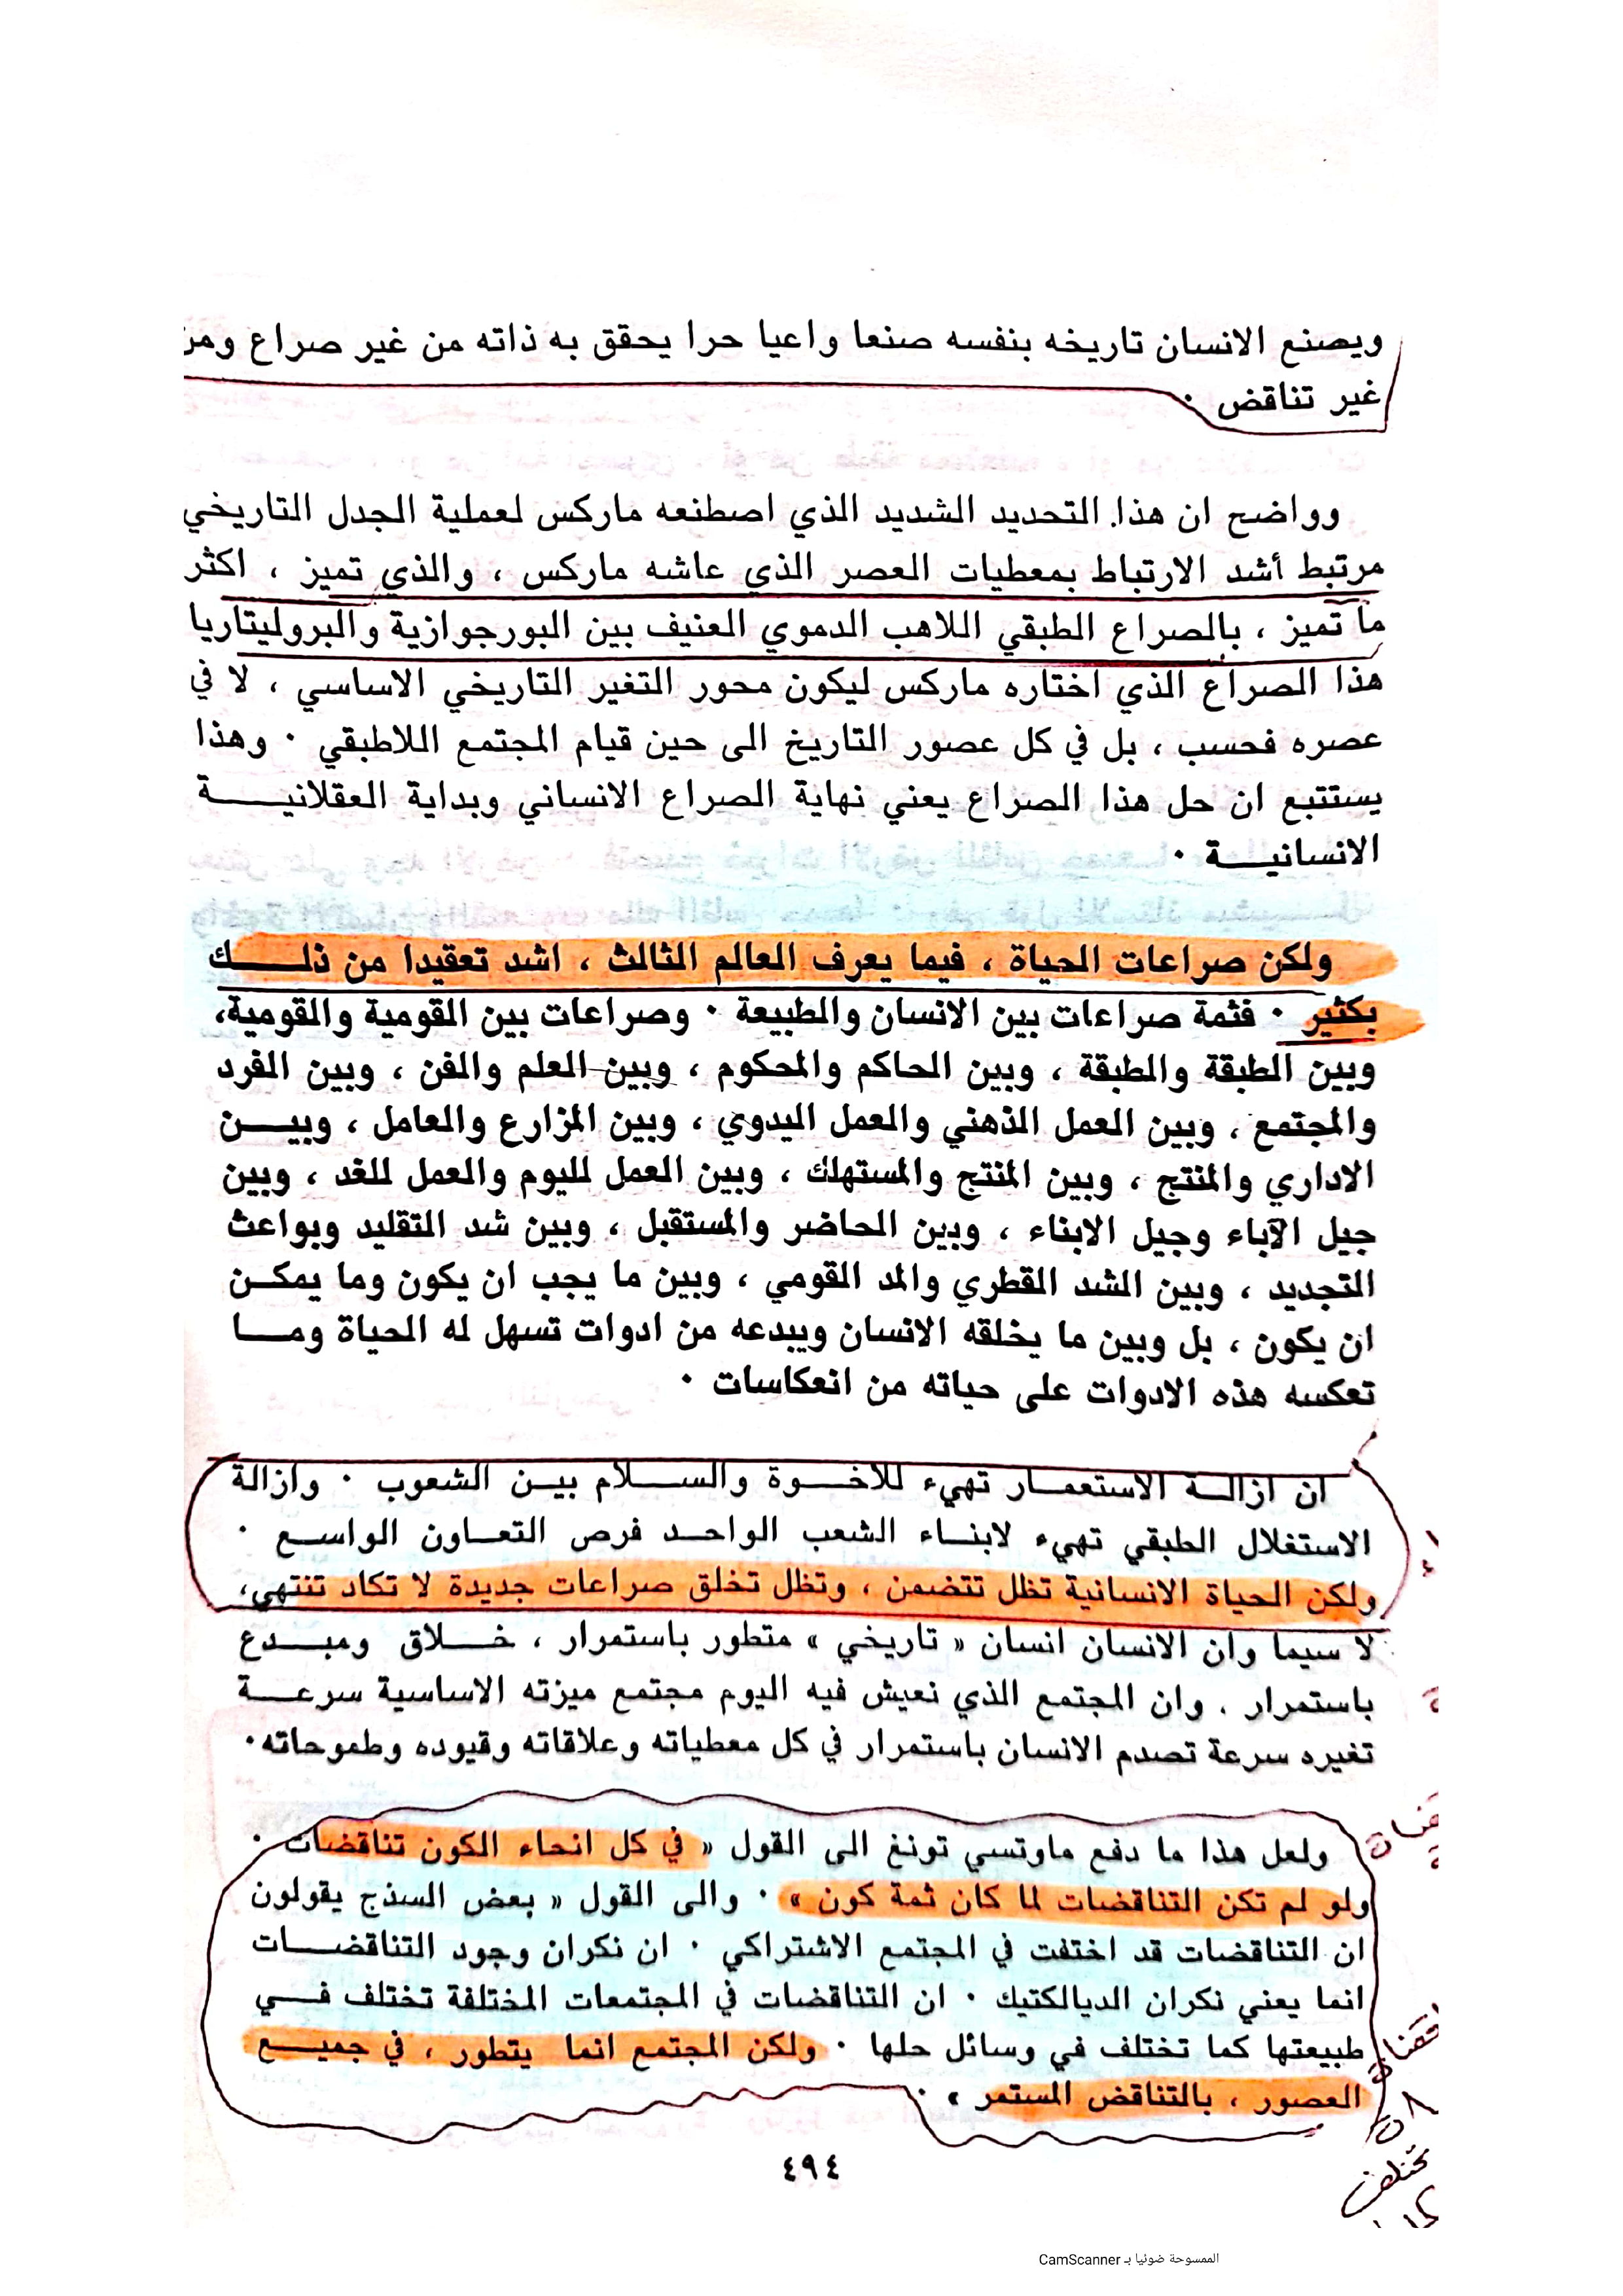 ويصنع الانسان تاريخه بنفسه صنعا واعيا حرا يحقق به ذاته من غير صراع ومن
غير تناقض .
وواضح ان هذا التحديد الشديد الذي اصطنعه ماركس لعملية الجدل التاريخي
مرتبط أشد الارتباط بمعطيات العصر الذي عاشه ماركس ، والذي تميز ، اكثر
ما تميز ، بالصراع الطبقي اللاهب الدموي العنيف بين البورجوازية والبروليتاريا
هذا الصراع الذي اختاره ماركس ليكون محور التغير التاريخي الاساسي ، لا في
عصره فحسب ، بل في كل عصور التاريخ الى حين قيام المجتمع اللاطبقي . وهذا
يستتبع ان حل هذا الصراع يعني نهاية الصراع الانساني وبداية العقلانيـــــة
الانسانيـــة .
ولكن صراعات الحياة ، فيما يعرف العالم الثالث ، اشد تعقيدا من ذلـــــك
بكثير . فثمة صراعات بين الانسان والطبيعة . وصراعات بين القومية والقومية،
وبين الطبقة والطبقة ، وبين الحاكم والمحكوم ، وبين العلم والفن ، وبين الفرد
والمجتمع ، وبين العمل الذهني والعمل اليدوي ، وبين المزارع والعامل ، وبيـــن
الاداري والمنتج ، وبين المنتج والمستهلك ، وبين العمل لليوم والعمل للغد ، وبين
جيل الآباء وجيل الابناء ، وبين الحاضر والمستقبل ، وبين شد التقليد وبواعث
التجديد ، وبين الشد القطري والمد القومي ، وبين ما يجب ان يكون وما يمكـــن
ان يكون ، بل وبين ما يخلقه الانسان ويبدعه من ادوات تسهل له الحياة ومـــا
تعكسه هذه الادوات على حياته من انعكاسات .
ان ازالـــة الاستعمـــار تهيء للاخـــوة والســـلام بيـــن الشعوب . وازالة
الاستغلال الطبقي تهيء لابنـــاء الشعب الواحـــد فرص التعـــاون الواســـع .
ولكن الحياة الانسانية تظل تتضمن ، وتظل تخلق صراعات جديدة لا تكاد تنتهي،
لا سيما وان الانسان انسان « تاريخي » متطور باستمرار ، خـــلاق ومبـــدع
باستمرار . وان المجتمع الذي نعيش فيه اليوم مجتمع ميزته الاساسية سرعـــة
تغيره سرعة تصدم الانسان باستمرار في كل معطياته وعلاقاته وقيوده وطموحاته.
ولعل هذا ما دفع ماوتسي تونغ الى القول « في كل انحاء الكون تناقضات .
ولو لم تكن التناقضات لما كان ثمة كون » . والى القول « بعض السذج يقولون
ان التناقضات قد اختفت في المجتمع الاشتراكي . ان نكران وجود التناقضـــات
انما يعني نكران الديالكتيك . ان التناقضات في المجتمعات المختلفة تختلف فـــي
طبيعتها كما تختلف في وسائل حلها . ولكن المجتمع انما يتطور ، في جميـــع
العصور ، بالتناقض المستمر » .
٤٩٤
الممسوحة ضوئيا بـ CamScanner